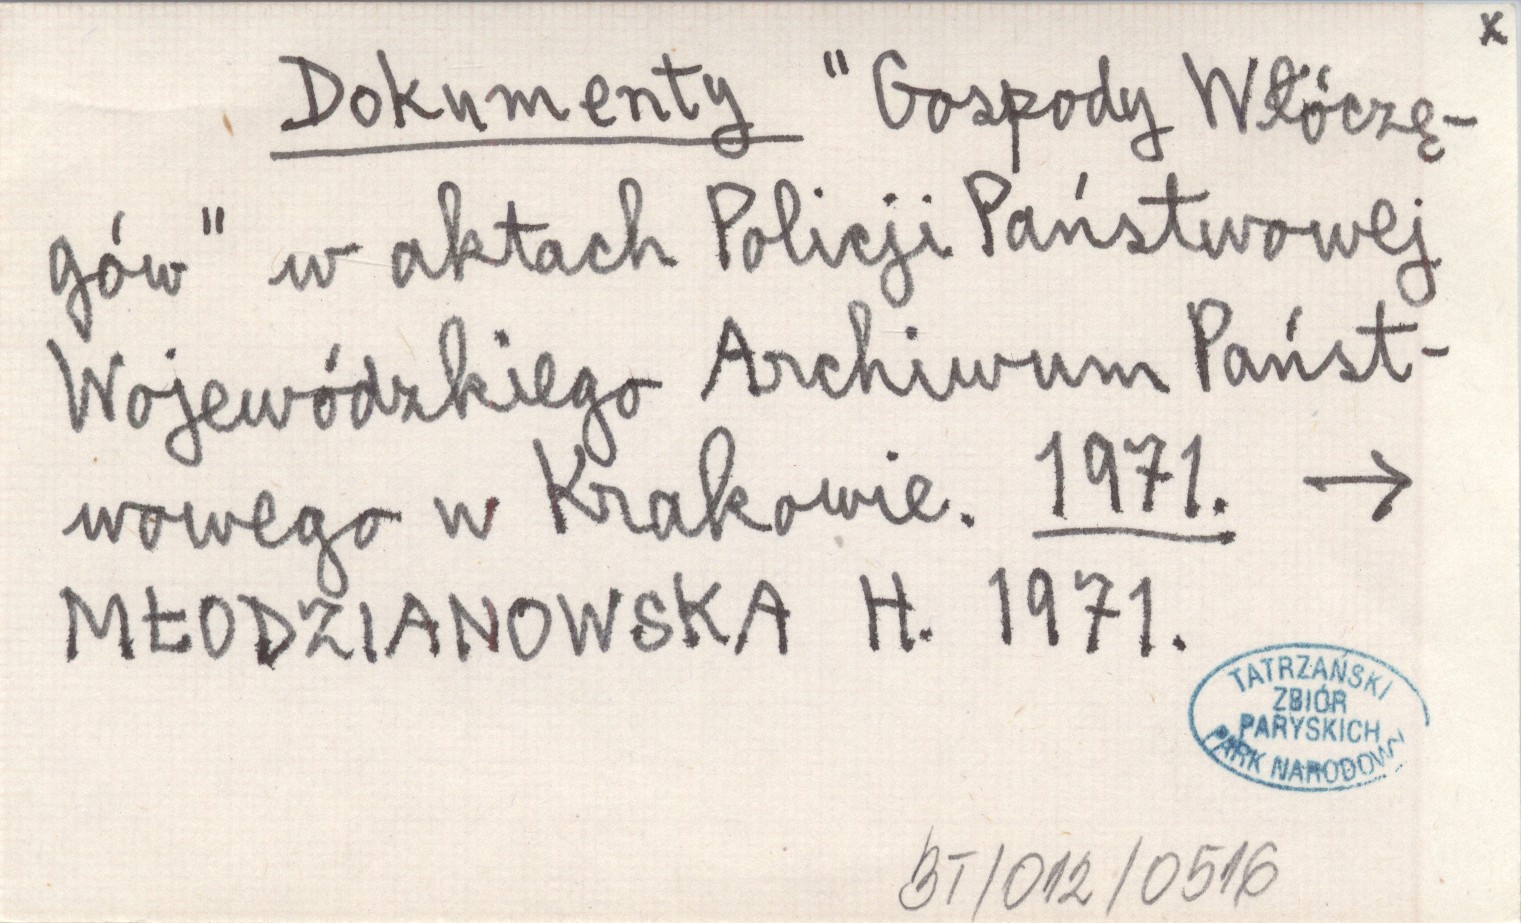 x
Dokumenty "Gospody Włóczę-
gów" w aktach Policji Państwowej
Wojewódzkiego Archiwum Państ-
wowego w Krakowie. 1971. →
MŁODZIANOWSKA H. 1971.
TATRZAŃSKI
ZBIÓR
PARYSKICH
PARK NARODOWY
BT/012/0516